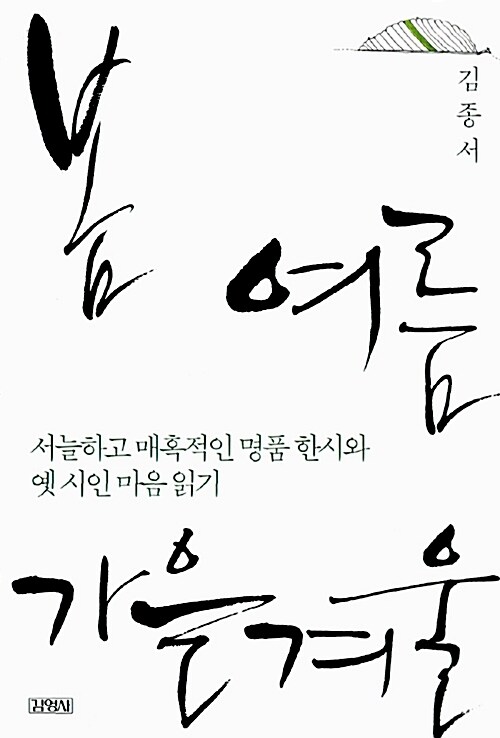 봄
김종서
여름
서늘하고 매혹적인 명품 한시와
옛 시인 마음 읽기
가을겨울
김영사